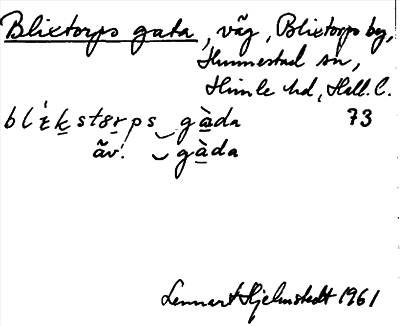 Blixtorps gata, väg, Blixtorps by,
Hunnestad sn,
Himle hd, Hall. l.
blɩ́ḵstɞṟps‿gàda 73
äv. ‿gàda
Lennart Hjelmstedt 1961